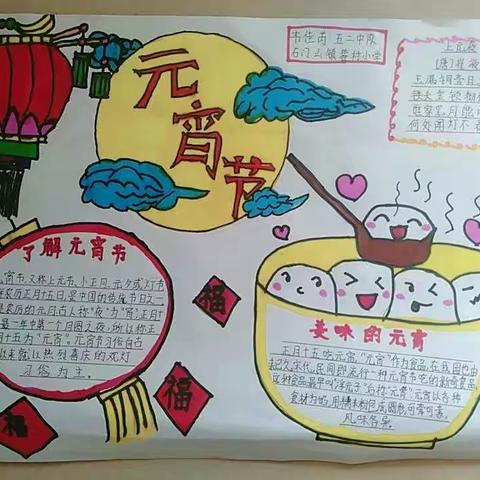 元宵节
韦佳芮 五二中队
石门山镇
上元夜
[唐]崔液
玉漏
铁关金锁
谁家见月能
何处闻灯不看
了解元宵节
宵节,又称上元节、小正月、元夕或灯节
农历正月十五日,是中国的传统节日之一
正月是农历的元月,古人称“夜”为“宵”,正月十
是一年中第一个月圆之夜,所以称正
十五为“元宵节”。元宵节习俗自古
以来就以热烈喜庆的观灯
习俗为主。
福
福
福
美味的元宵
正月十五吃元宵,“元宵”作为食品,在我国也由
来已久。宋代,民间即流行一种元宵节吃的新奇食品。
这种食品,最早叫“浮元子”,后称“元宵”。元宵以各种
食材为馅,用糯米粉包成圆形,可荤可素,
风味各异。